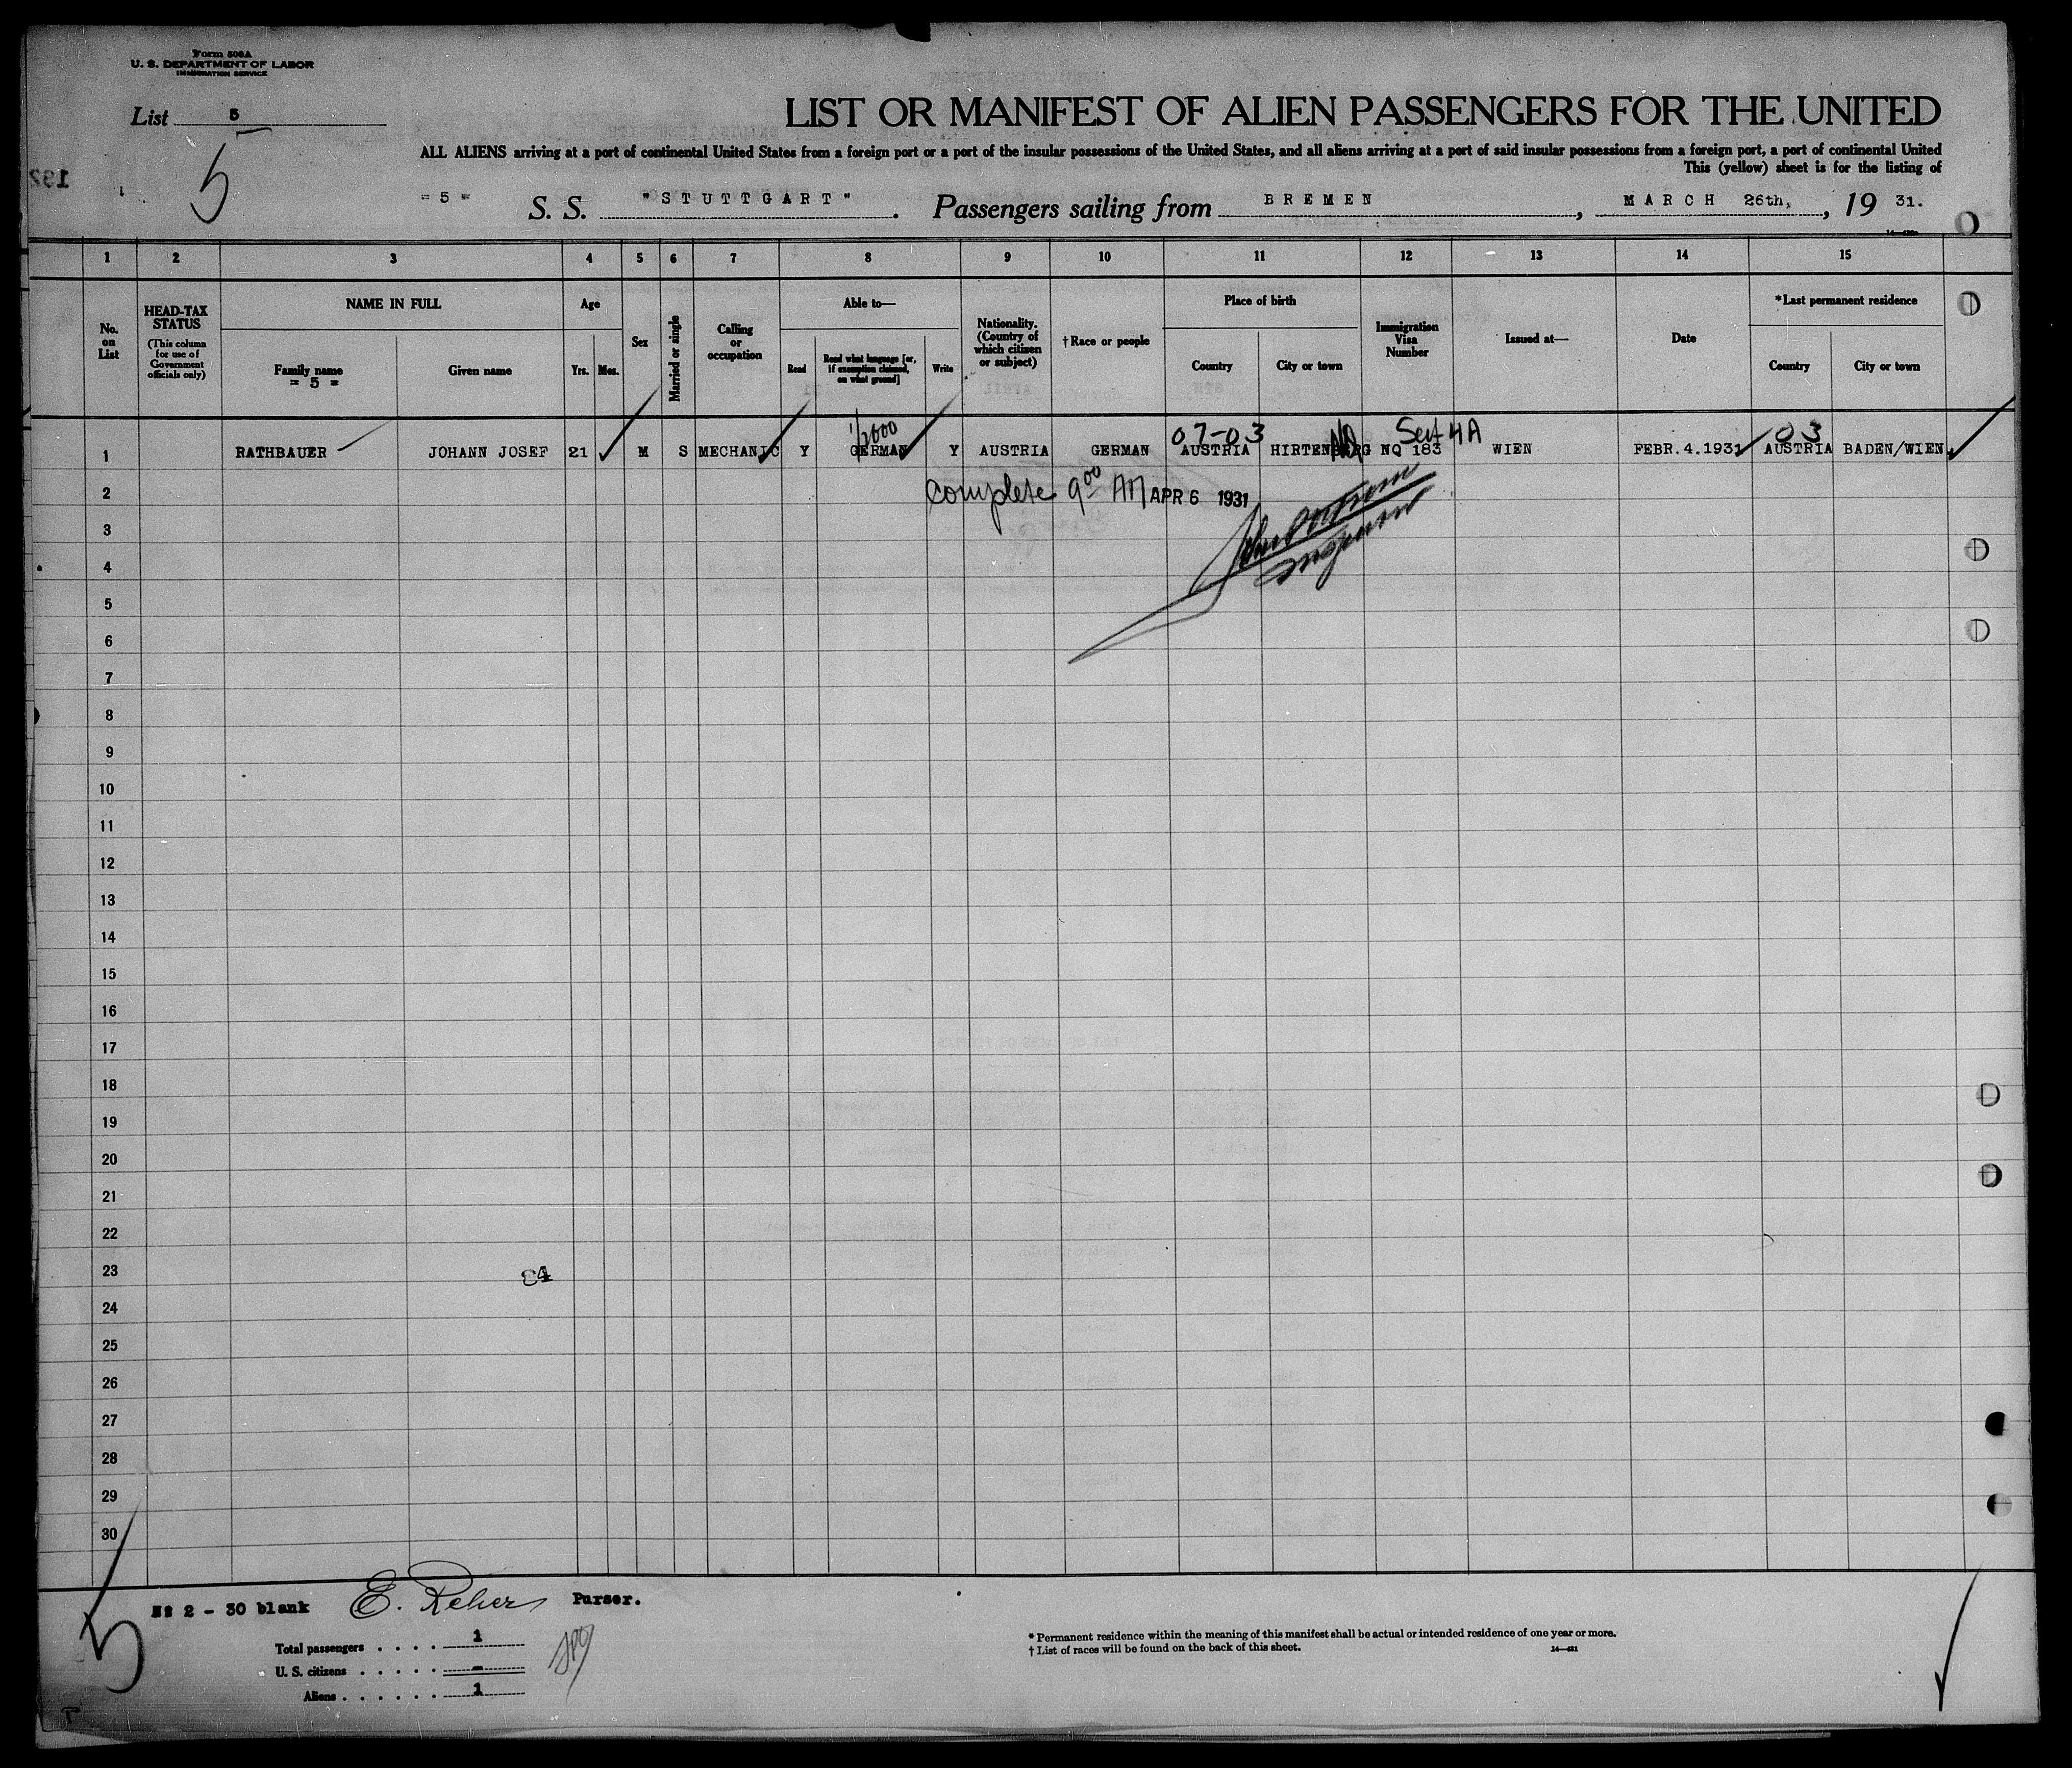 Form 500A
U. S. DEPARTMENT OF LABOR
IMMIGRATION SERVICE
List 5
5
LIST OR MANIFEST OF ALIEN PASSENGERS FOR THE UNITED
ALL ALIENS arriving at a port of continental United States from a foreign port or a port of the insular possessions of the United States, and all aliens arriving at a port of said insular possessions from a foreign port, a port of continental United
This (yellow) sheet is for the listing of
= 5 = S. S. "STUTTGART". Passengers sailing from BREMEN, MARCH 26th, , 19 31.
1 2 3 4 5 6 7 8 9 10 11 12 13 14 15
No. on List
HEAD-TAX STATUS (This column for use of Government officials only)
NAME IN FULL
Family name
= 5 =
Given name
Age
Yrs. Mos.
Sex
Married or single
Calling or occupation
Able to—
Read
Read what language [or, if exemption claimed, on what ground]
Write
Nationality. (Country of which citizen or subject)
†Race or people
Place of birth
Country
City or town
Immigration Visa Number
Issued at—
Date
*Last permanent residence
Country
City or town
07-03 Sect 4A 03
1 RATHBAUER JOHANN JOSEF 21 M S MECHANIC Y GERMAN Y AUSTRIA GERMAN AUSTRIA HIRTENBERG NQ 183 WIEN FEBR.4.1931 AUSTRIA BADEN/WIEN
2 Complete 9 00 AM APR 6 1931
3
4
5
6
7
8
9
10
11
12
13
14
15
16
17
18
19
20
21
22
23
24
25
26
27
28
29
30
84
5
№ 2 - 30 blank E. Reher Purser.
Total passengers . . . . 1
U. S. citizens . . . . . . -
Aliens . . . . . . 1
* Permanent residence within the meaning of this manifest shall be actual or intended residence of one year or more.
† List of races will be found on the back of this sheet.